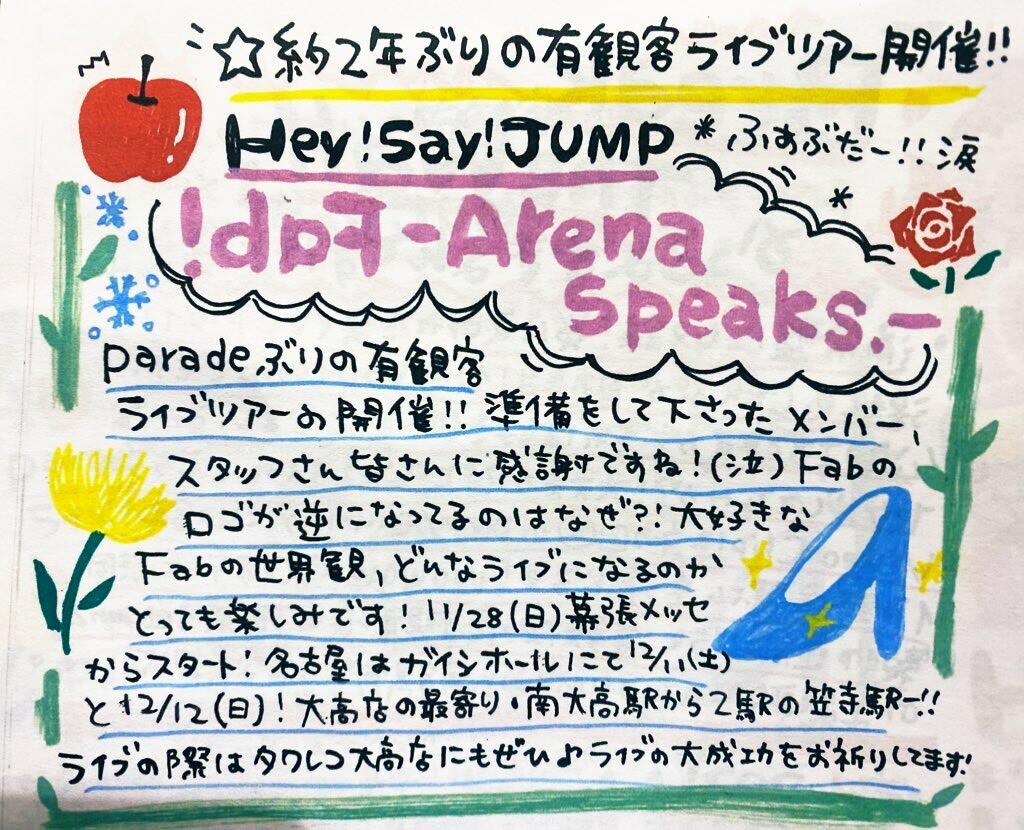 ☆約2年ぶりの有観客ライブツアー開催!!
Hey!Say!JUMP *ふぁぶだー!!涙
!dɒꟻ-Arena
speaks.-
paradeぶりの有観客
ライブツアーの開催!! 準備をして下さったメンバー、
スタッフさん皆さんに感謝ですね!(泣) Fabの
ロゴが逆になってるのはなぜ?! 大好きな
Fabの世界観、どんなライブになるのか
とっても楽しみです! 11/28(日)幕張メッセ
からスタート! 名古屋はガイシホールにて12/11(土)
と12/12(日)! 大高店の最寄り・南大高駅から2駅の笠寺駅ー!!
ライブの際はタワレコ大高店にもぜひ♪ライブの大成功をお祈りしてます!